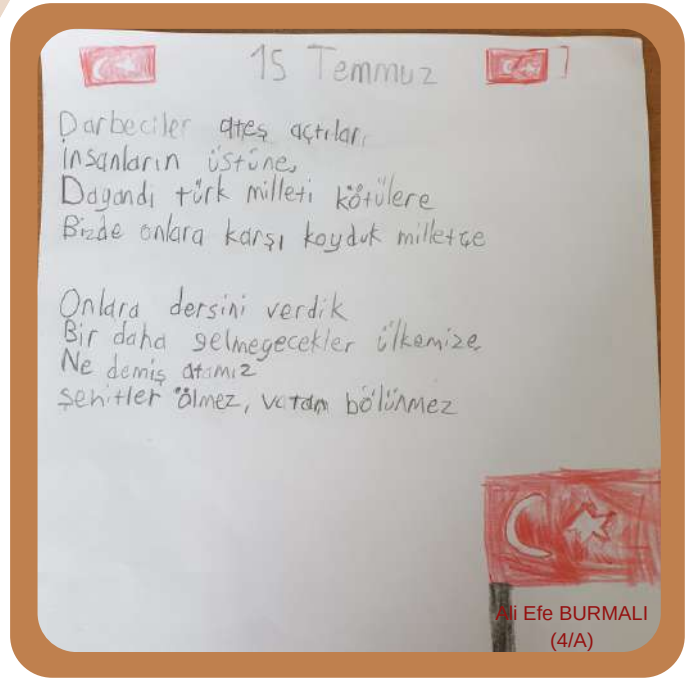 15 Temmuz
Darbeciler ateş açtılar,
insanların üstüne,
Dayandı türk milleti kötülere
Bizde onlara karşı koyduk milletçe
Onlara dersini verdik
Bir daha gelmeyecekler ülkemize,
Ne demiş atamız
şehitler ölmez, vatan bölünmez
Ali Efe BURMALI
(4/A)